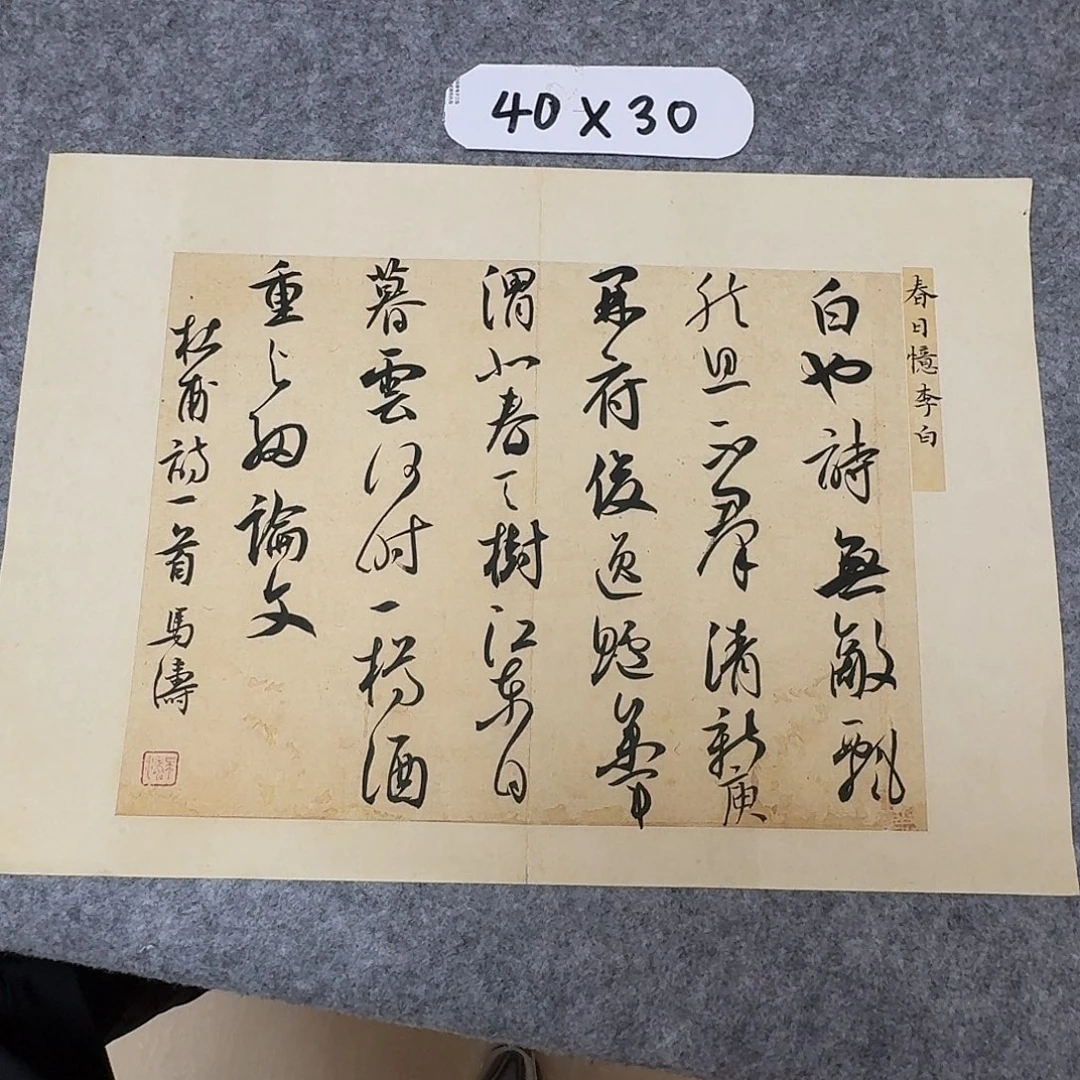 40 X 30
春日憶李白
白也詩無敵飄
然思不羣清新庾
開府俊逸鮑參軍
渭北春天樹江東日
暮雲何時一樽酒
重與細論文
杜甫詩一首 馬濤